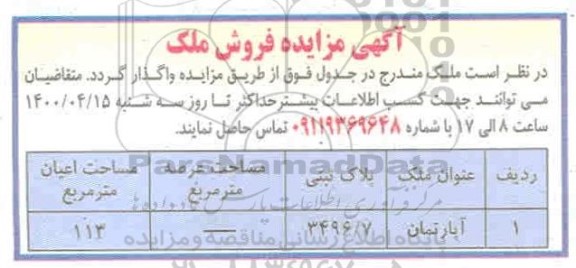 آگهی مزایده فروش ملک
در نظر است ملک مندرج در جدول فوق از طریق مزایده واگذار گردد. متقاضیان
می توانند جهت کسب اطلاعات بیشتر حداکثر تا روز سه شنبه ۱۴۰۰/۰۴/۱۵
ساعت ۸ الی ۱۷ با شماره ۰۹۱۱۹۳۶۹۶۴۸ تماس حاصل نمایند.
ردیف عنوان ملک پلاک ثبتی مساحت عرصه مترمربع مساحت اعیان مترمربع
۱ آپارتمان ۳۴۹۶/۷ — ۱۱۳
ParsNamadData
پایگاه اطلاع رسانی مناقصه و مزایده